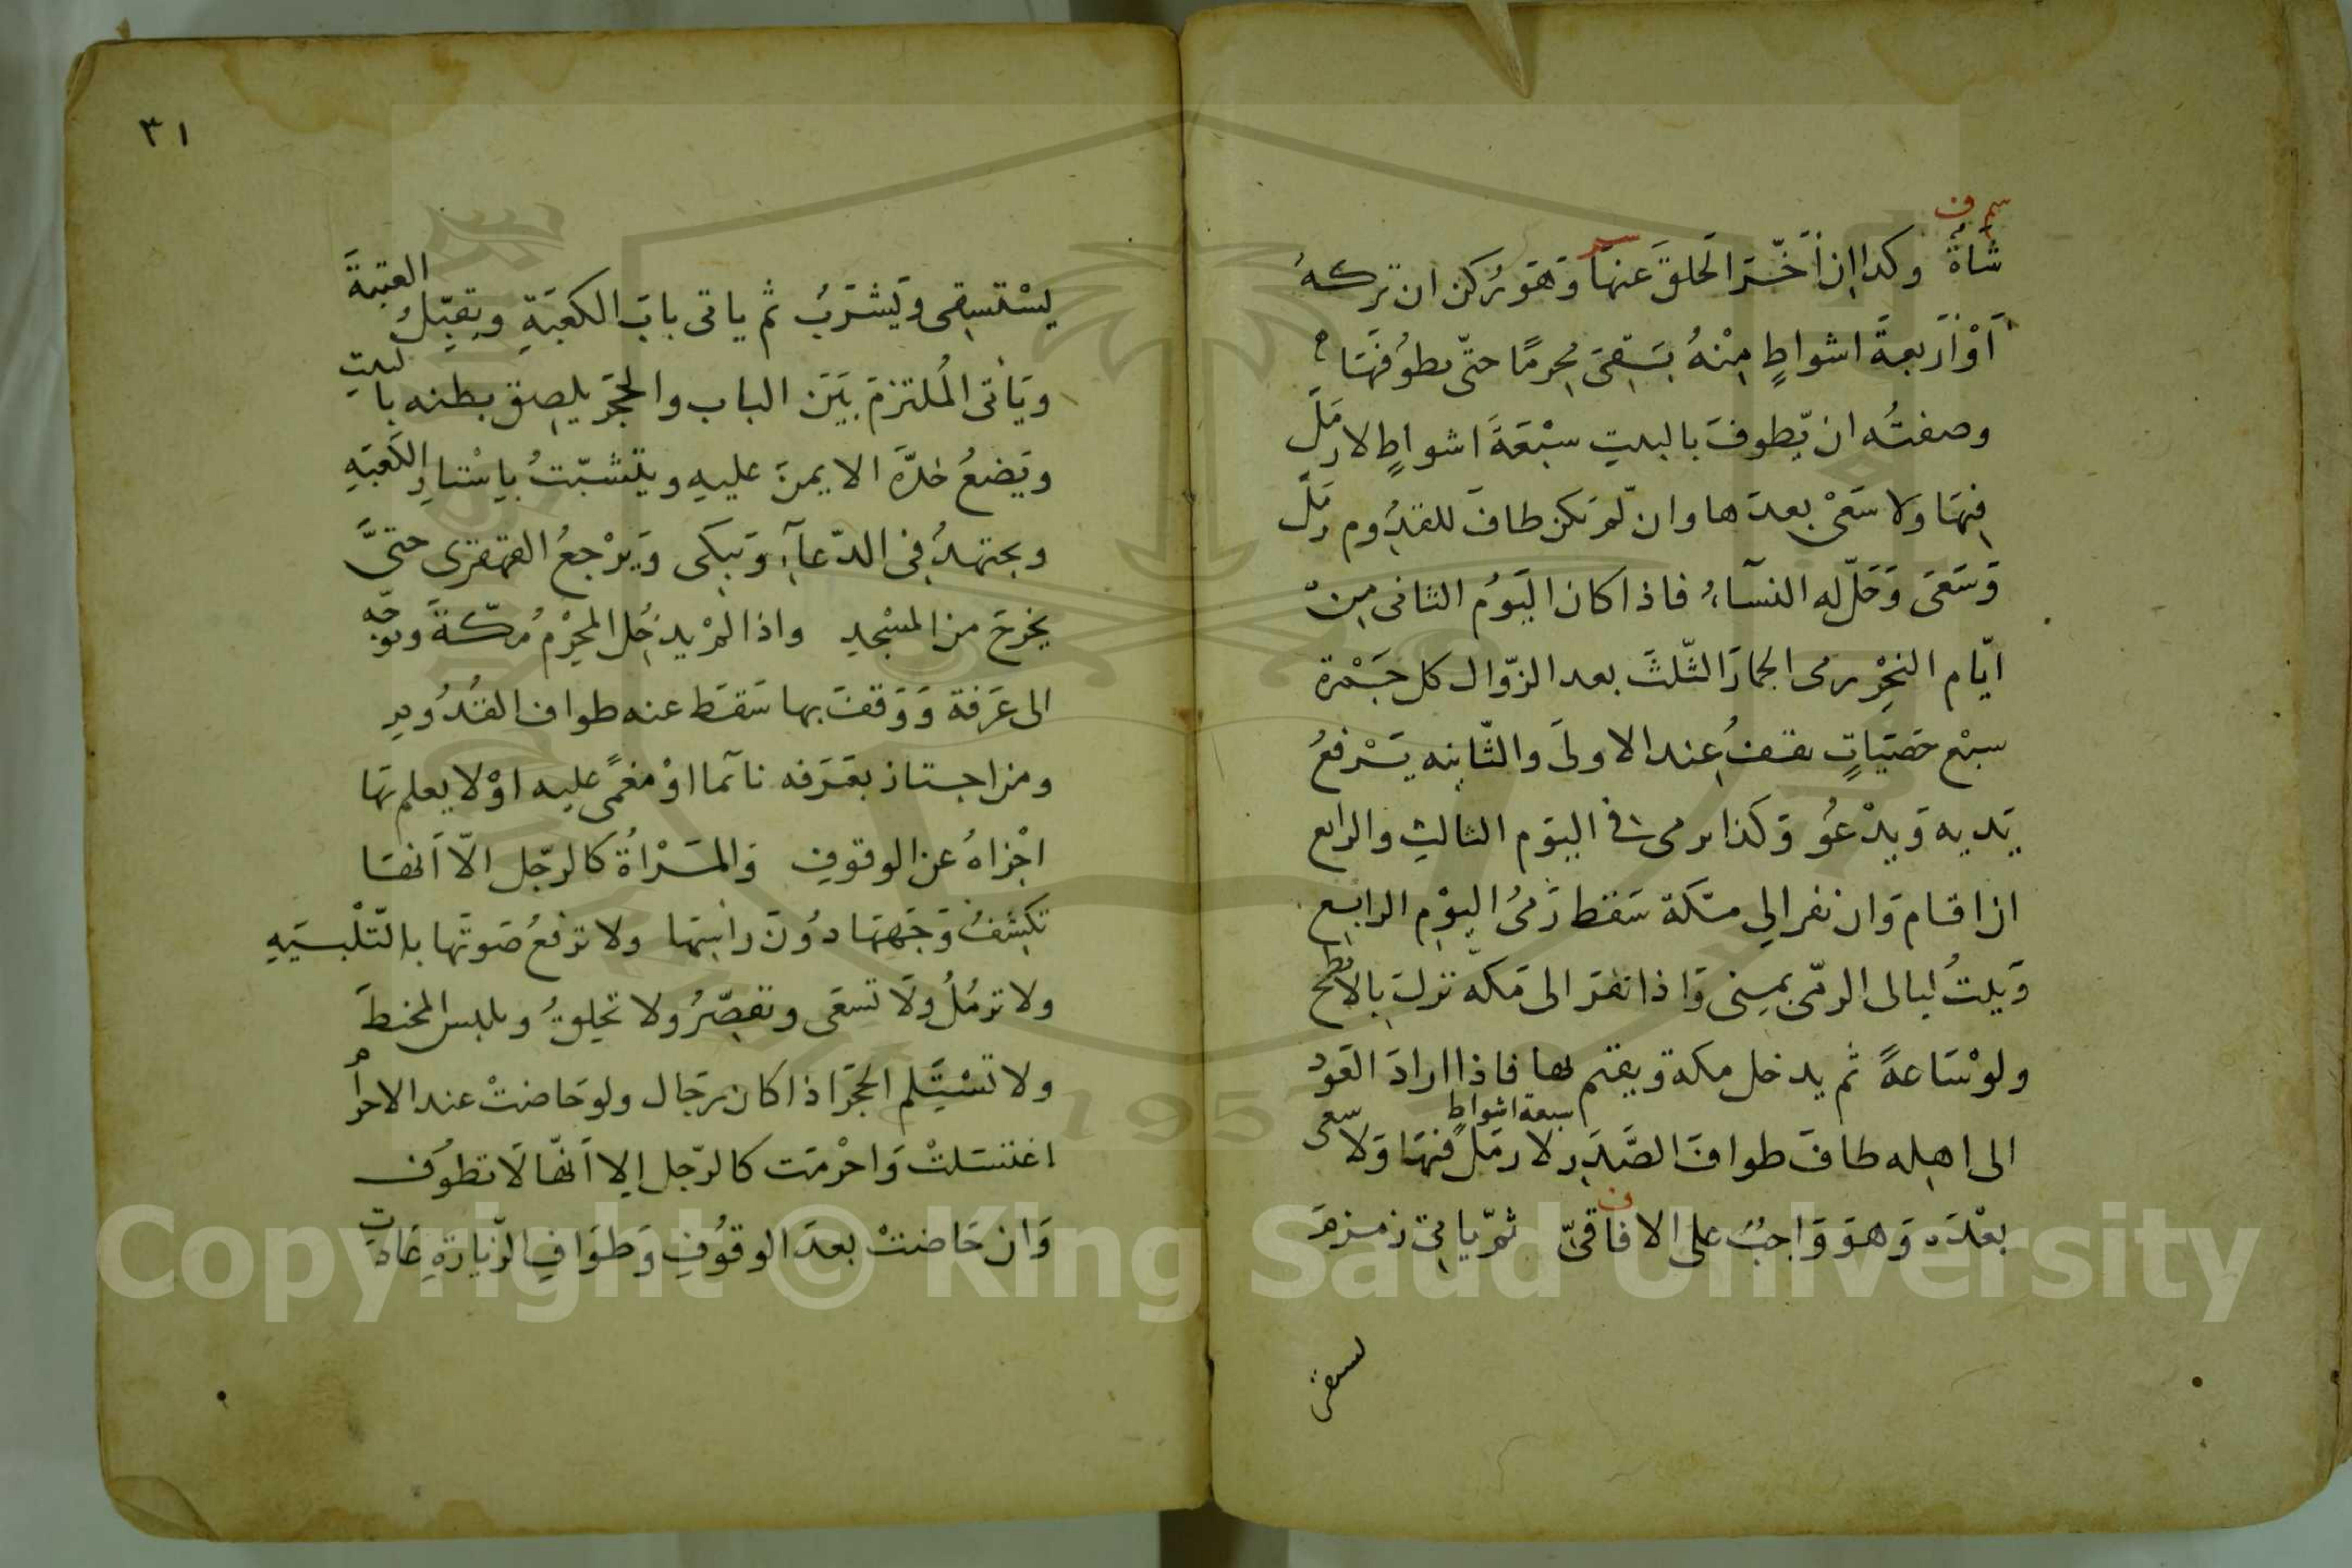 سم ف
شَاةٌ وكذا اِن أَخَّرَ الحَلقَ عنهَا وَهوَ رُكن ان تركهُ
اَوْ اَربعةَ اشواطٍ مِنْهُ بَقِىَ مُحرِمًا حتّى يطوُفَهَا
وصفتُه ان يّطوفَ بالبيتِ سبْعَةَ اشواطٍ لا رَمَلَ
فِيهَا ولا سَعْىَ بعدَها وان لّم يَكن طافَ للقدُوم رَمَلَ
وَسَعَى وَحَلّ له النسآءُ فاذا كان اليَومُ الثانى مِنْ
ايّام النحْرِ رمى الجمارَ الثّلثَ بعد الزّوال كل جَمْرة
سبْع حَصَيَاتٍ يقفُ عِند الاولىَ والثّانيه يَرْفعُ
يَديه وَيدْعُو وَكذا يرمى فى اليوم الثالثِ والرابع
ان اقام وَان نفر الى مكَة سَقط رَمىُ اليوْمِ الرابعِ
وَيبيتُ ليالى الرمّى بمِنى وَاذا نفَرَ الى مَكّه نزلَ بِالابطح
ولوْ سَاعةً ثم يدخل مكة ويقيم بها فاذا ارادَ العَود
الى اهِله طافَ طوافَ الصَّدَرِ سبعة اشواطٍ لا رمَلَ فيهَا وَلا سعى
بعْدَه وَهوَ وَاجبٌ على الافاقىّ ثمّ ياتى زمزمَ
ف
يستقى
٣١
يسْتسِقى وَيشرَبُ ثم ياتى بابَ الكعبَةِ ويقبّلُ العتبةَ
ويَأتى المُلتزمَ بَيَن الباب والحجَرِ يلصِق بطنه بالبيتِ
ويَضعُ خدَّهَ الايمنَ عليهِ ويتشبّثُ باِسْتارِ الكعَبَهِ
ويجتهدُ فِى الدّعآءِ وَيبكِى وَيرْجعُ القهقرى حتىَّ
يخرجَ من المسْجدِ واذا لمْ يدخُل المحرْمُ مكّةَ وتوجّه
الى عَرَفة وَوَقفَ بها سَقطَ عنه طواف القُدُومِ
ومن اجتاز بعَرَفه نآئما اوْ مغمًى عليه اوْ لا يعلم بَها
اجْزاهُ عن الوقوفِ وَالمَرْاةُ كالرّجل الاّ اَنهَا
تكشفُ وَجَههَا دوُنَ راسِهَا ولا ترفعُ صَوتَها باِلتّلْبيَهِ
ولا ترمُلُ وَلَا تسعَى وتقصّرُ ولا تحلِقُ وتلبس المخيطَ
ولا تسْتَلِم الحجَرَ اذا كان رجَال ولو حَاضتْ عند الاحرامِ
اغتسَلتْ وَاحْرمَت كالرّجل اِلا اَنّها لَا تطوُف
وَان حَاضتْ بعدَ الوقوُفِ وَطوَافِ الزّيارةِ عَادت
Copyright © King Saud University
195